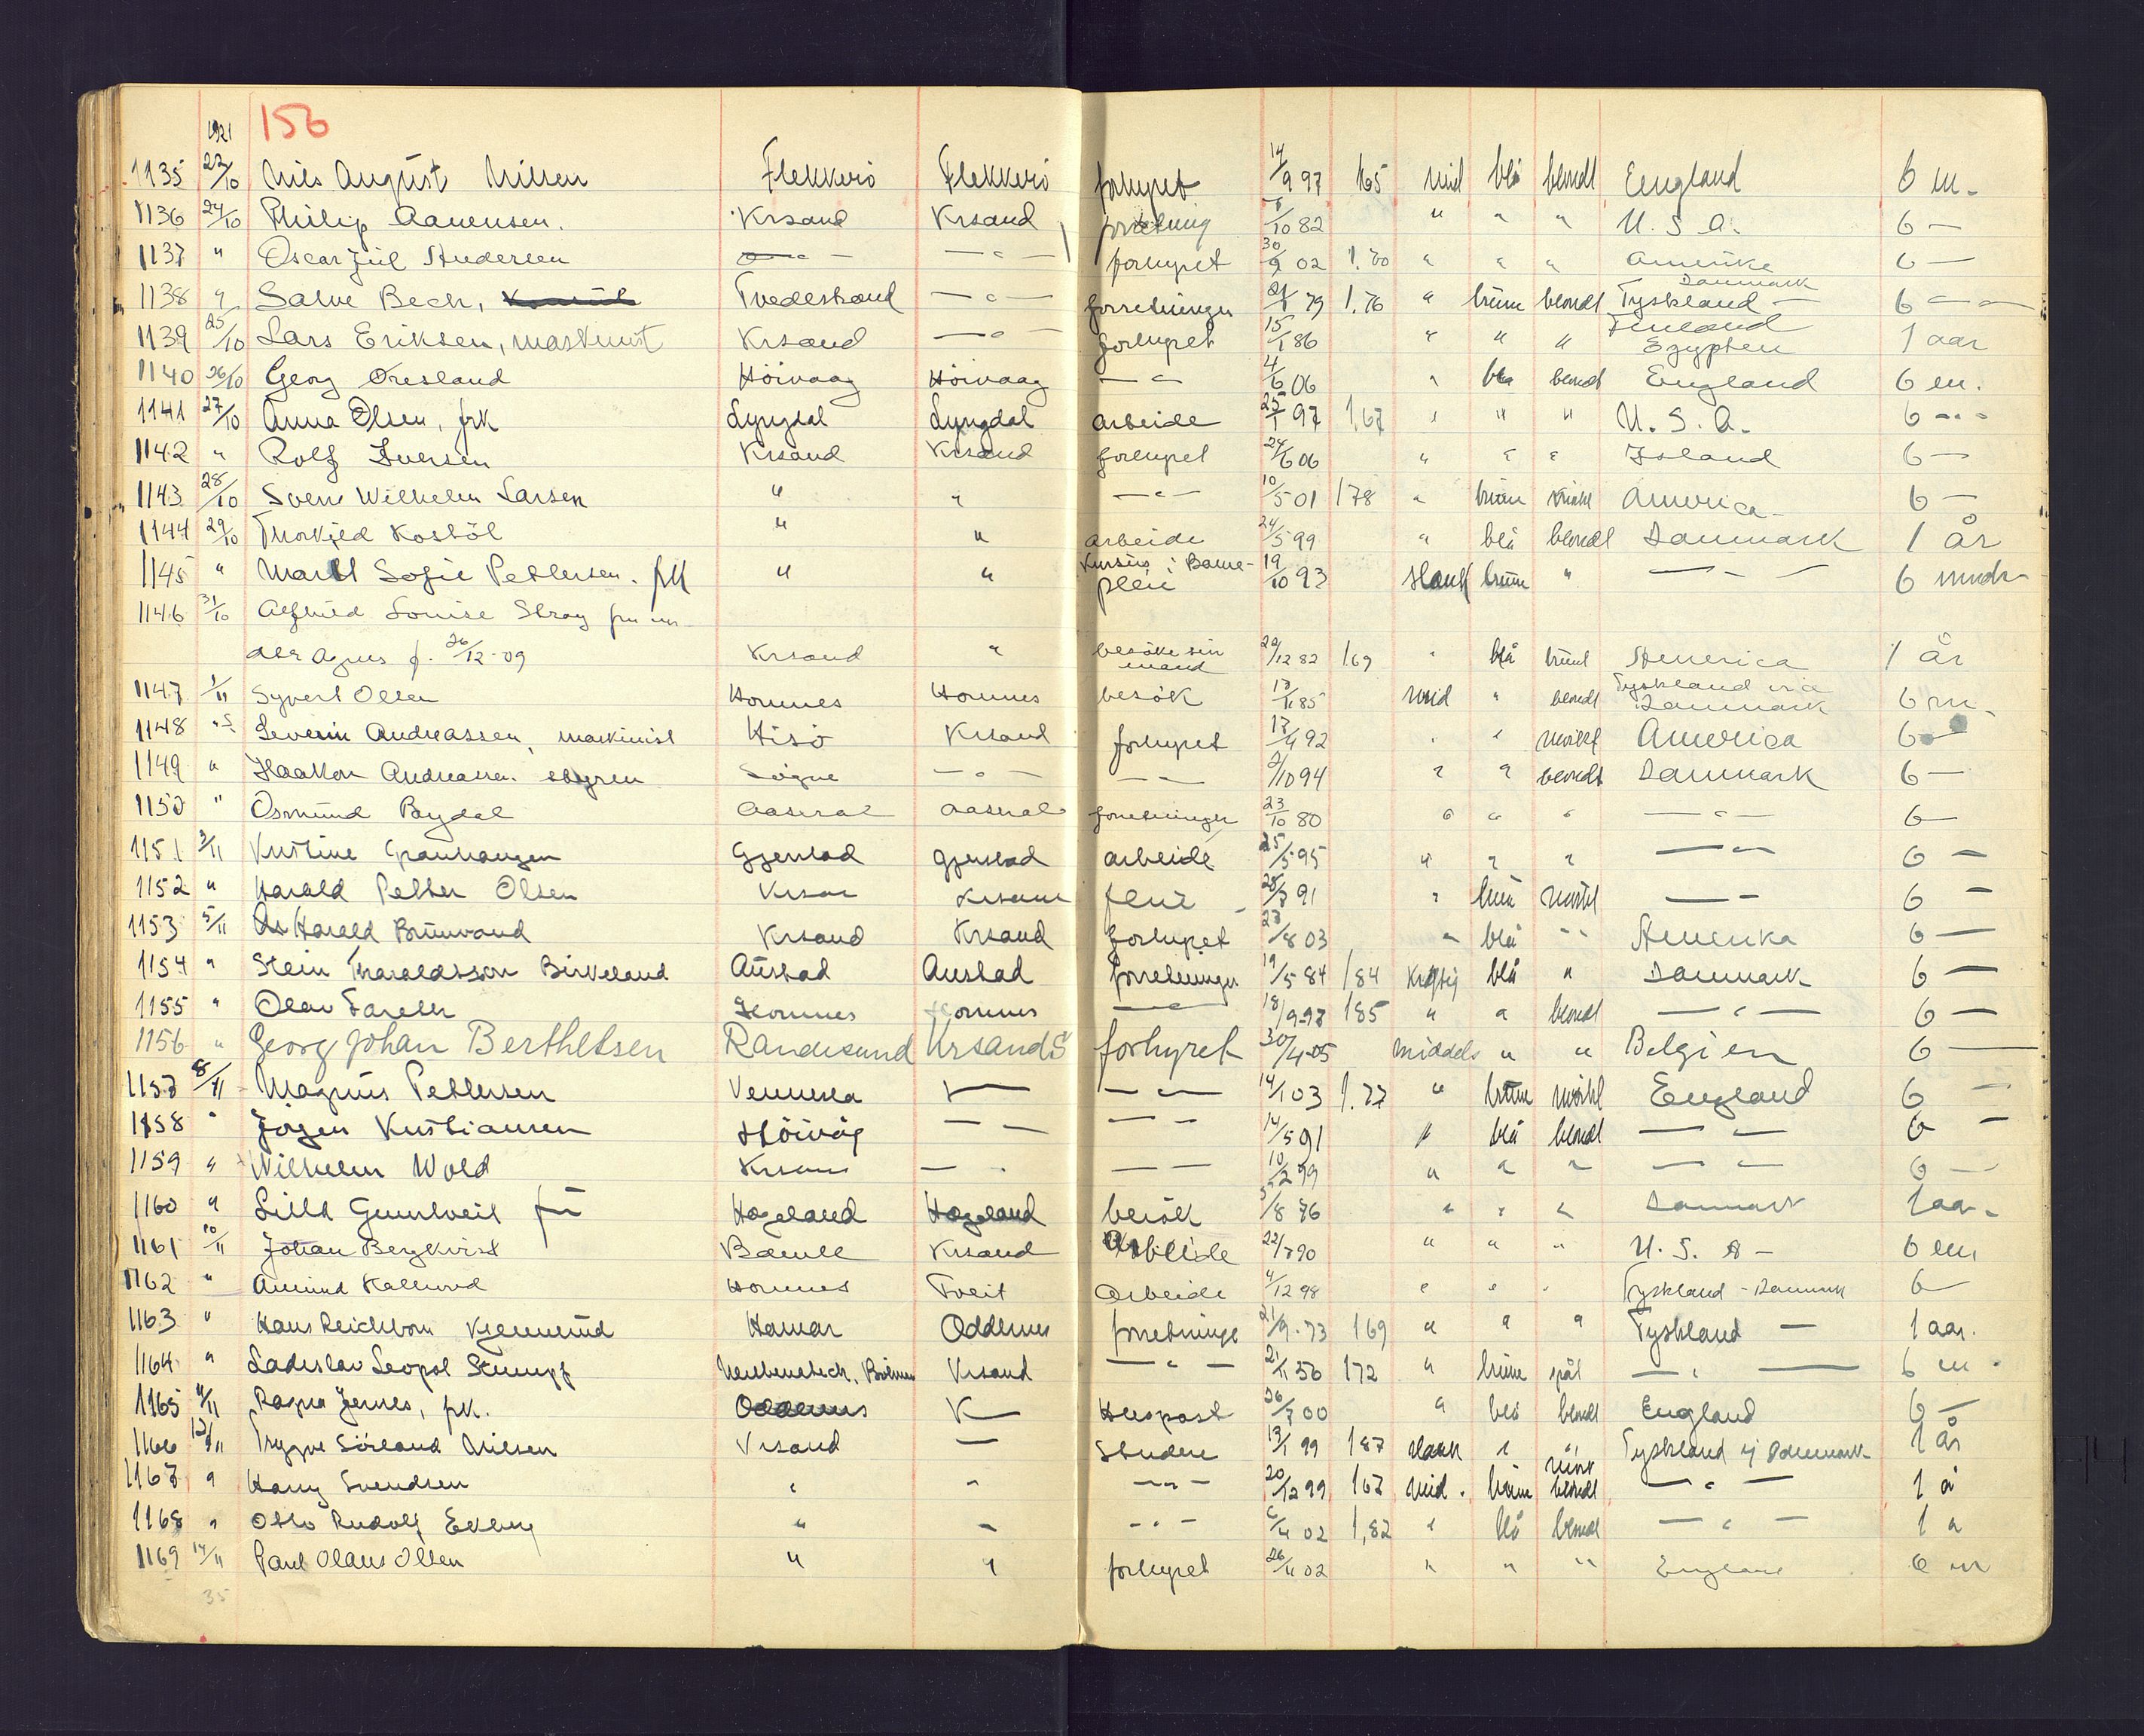 1921 156
1135 22/10 Nils August Nilsen Flekkerö Flekkerö forhyret 14/9 97 165 mid blå blondt England 6 m.
1136 24/10 Philip Aanensen. Krsand Krsand forretning /10 82 " " " U. S. A. 6 —
1137 " Oscar Juul Andersen — " — — " — forhyret 30/9 02 1.70 " " " Amerika 6 —
1138 " Salve Bech, Tvedestrand — " — forretninger 21/ 79 1.76 " brune blondt Tyskland — Danmark 6 — —
1139 25/10 Lars Eriksen, maskinist Krsand — " — forhyret 15/1 86 " " " Finland Egypten 1 aar
1140 26/10 Georg Öresland Höivaag Höivaag — " — 4/6 06 " blå blondt England 6 m.
1141 27/10 Anna Olsen, frk Lyngdal Lyngdal arbeide 25/1 97 1.67 " " " U. S. A. 6 - - -
1142 " Rolf Iversen Krsand Krsand forhyret 24/6 06 " " " Island 6 —
1143 28/10 Svein Wilhelm Larsen " " — " — 10/5 01 178 " brune mörkt America - 6 —
1144 29/10 Thorkjed Kostöl " " arbeide 24/5 99 " blå blondt Danmark 1 år
1145 " Sofie Pettersen. frk " " Kursus i Barne-
pleie 19/10 93 slank brune " — " — 6 mndr
1146 31/10 Alfhild Louise Stray fru
Agnes f. 26/12-09 Krsand " besöke sin
mand 29/12 82 169 " blå brunt America 1 År
1147 1/11 Syvert Olsen Hornnes Hornnes besök 17/1 85 mid " blondt Tyskland via Danmark 6 m.
1148 " Severin Andreassen, maskinist Hisö Krsand forhyret 17/4 92 " " mörkt America 6 —
1149 " Haakon Andreassen. Sögne — " — — — 2/10 94 " " blondt Danmark 6 —
1150 " Osmund Bydal Aaseral Aaseral forretninger 23/10 80 " " " — " — 6 —
1151 3/11 Kristine Granhaugen Gjerstad Gjerstad arbeide 25/5 95 " " " — " — 6 —
1152 " Harald Petter Olsen Krsan Krsan 28/7 91 " brun mörkt — — 6 —
1153 5/11 Harald Brunvand Krsand Krsand forhyret 27/8 03 " blå " Amerika 6 —
1154 " Stein Tharaldsson Birkeland Austad Austad forretninger 19/5 84 184 Kraftig blå " Danmark 6 —
1155 " Olav Hornnes Hornnes — " — 18/9-97 185 " " blondt — " — 6 —
1156 " Georg Johan Berthelsen Randesund KrsandS forhyret 30/4-05 middels " " Belgien 6 —
1157 8/11 Magnus Pettersen Vennesla K— — " — 14/1 03 1.77 " brune mörkt England 6 —
1158 " Jörgen Kristiansen Höivåg — — — — 14/5 91 " blå blondt — — 6 —
1159 " Wilhelm Wold Krsan — " — — 10/2 99 " " " — — 6 —
1160 " Gunlveit fru Hægeland Hægeland besök /8 76 " " " Danmark 1 aar
1161 10/11 Johan Bergkvist Bamle Krsand Arbeide 22/7 90 " " " U. S. A — 6 m
1162 " Hornnes Tveit Arbeide 4/12 98 " " " Tyskland - Danmark 6 —
1163 " Hans Reichborn Kjennerud Hamar Oddernes forretninge 21/9-73 169 " " " Tyskland — 1 aar.
1164 " Ladislav Leopol Stumpf Krsand — " — 21/11 172 " brune — " — 6 m.
1165 11/11 Ragna Jernes, frk. Oddernes K— Huspost 26/7 00 " blå blondt England 6 —
1166 12/11 Trygve Sörland Nilsen Krsand — Studere 13/1 99 187 slank " " Tyskland Danmark 1 år
1167 " Harry Svendsen " " — " — 20/12 99 167 mid. brune mörk blondt — " — 1 å
1168 " Otto Rudolf " " — " — 6/4 02 1,82 " blå blondt — " — 1 a
1169 14/11 Paul Olaus Olsen " " forhyret 26/11 02 " " " England 6 m
35